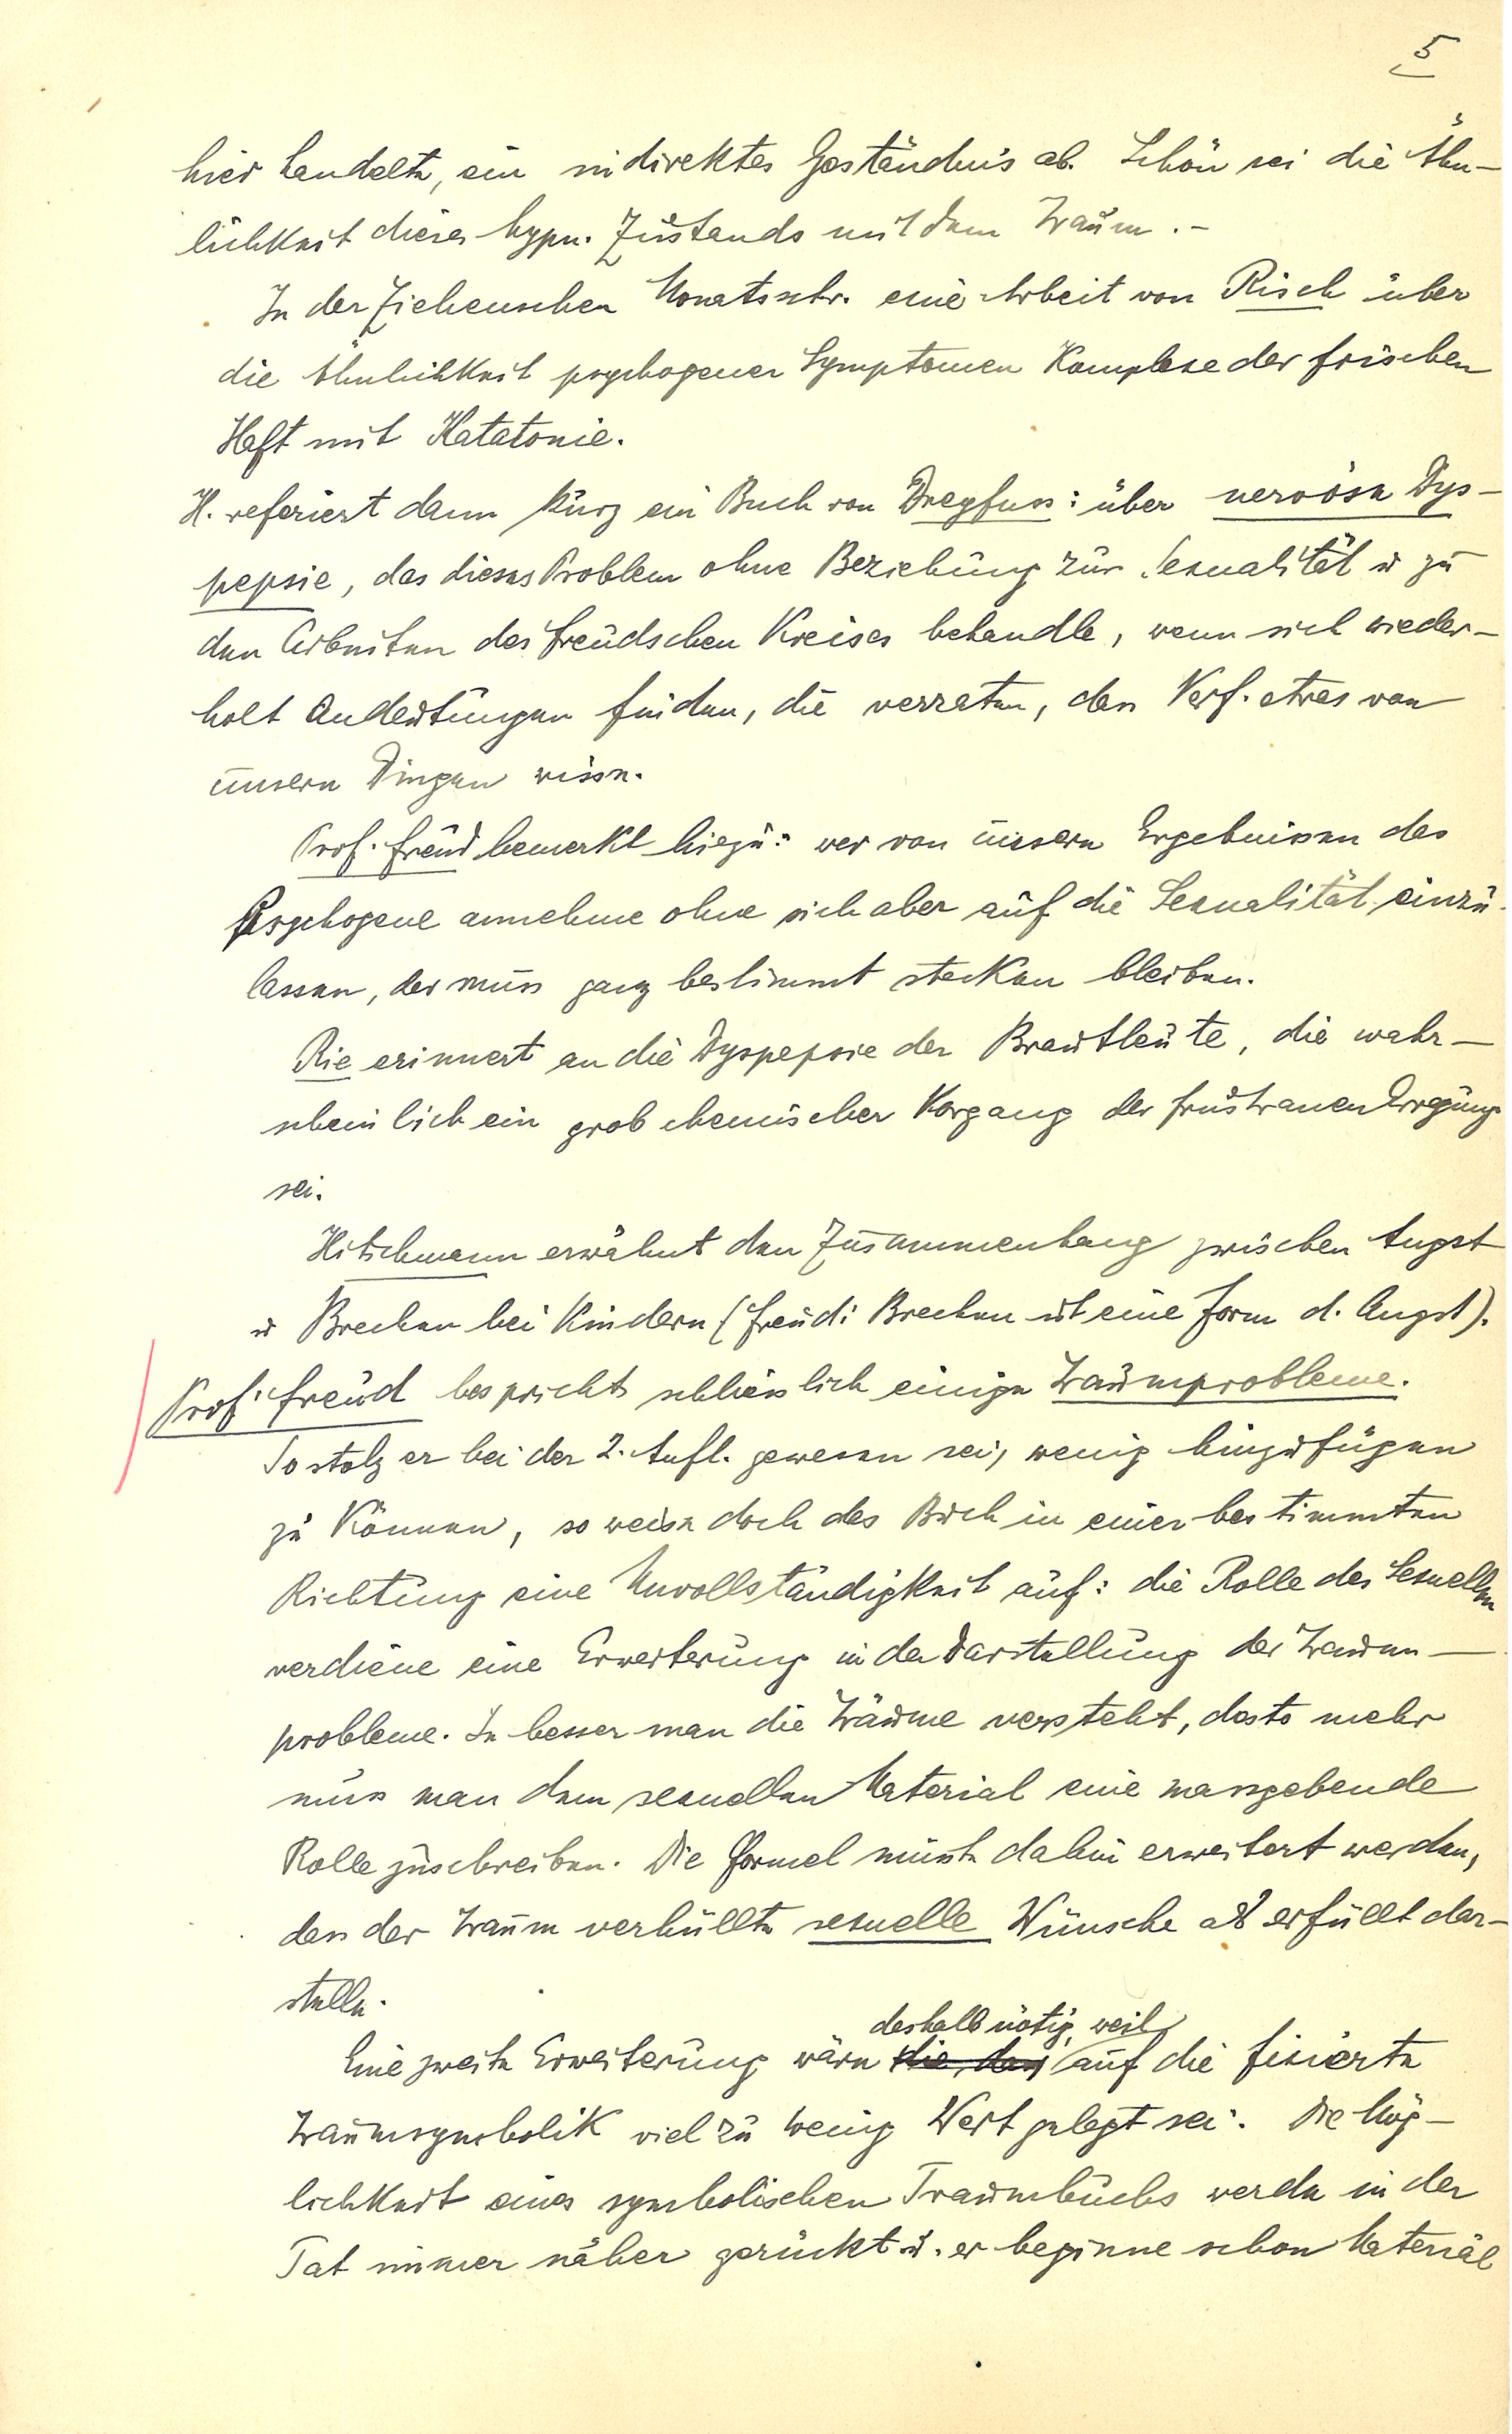 5
hier handelte, ein indirektes Geständnis ab. Schön sei die Ähn-
lichkeit dieses hypn. Zustands mit dem Traum. -
In der Ziehenschen Monatsschr. eine Arbeit von Risch über
die Ähnlichkeit psychogener Symptomen Komplexe der frischen
Haft mit Katatonie.
H. referiert dann kurz ein Buch von Dreyfuss: über nervöse Dys-
pepsie, das dieses Problem ohne Beziehung zur Sexualität u zu
den Arbeiten des Freudschen Kreises behandle, wenn sich wieder-
holt Andeutungen finden, die verraten, dass Verf. etwas von
unsern Dingen wisse.
Prof. Freud bemerkt hiezu: wer von unsern Ergebnissen das
Psychogene annehme ohne sich aber auf die Sexualität einzu-
lassen, der muss ganz bestimmt stecken bleiben.
Rie erinnert an die Dyspepsie der Brautleute, die wahr-
scheinlich ein grob chemischer Vorgang der frustranen Erregung
sei.
Hitschmann erwähnt den Zusammenhang zwischen Angst
u Brechen bei Kindern (Freud: Brechen ist eine Form d. Angst).
Prof. Freud bespricht schliesslich einige Traumprobleme.
So stolz er bei der 2. Aufl. gewesen sei, wenig hinzufügen
zu können, so weise doch das Buch in einer bestimmten
Richtung eine Unvollständigkeit auf: die Rolle des Sexuellen
verdiene eine Erweiterung in der Darstellung der Traum-
probleme. Je besser man die Träume versteht, desto mehr
muss man dem sexuellen Material eine massgebende
Rolle zuschreiben. Die Formel müsste dahin erweitert werden,
dass der Traum verhüllte sexuelle Wünsche als erfüllt dar-
stelle.
deshalb nötig, weil
Eine zweite Erweiterung wäre die, dass auf die fixierte
Traumsymbolik viel zu wenig Wert gelegt sei. Die Mög-
lichkeit eines symbolischen Traumbuchs werde in der
Tat immer näher gerückt u. er beginne schon Material